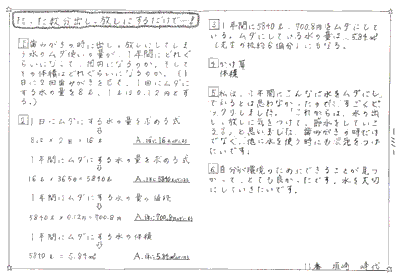 たった数分出しっ放しにするだけで…!
1 歯みがきの時に出しっ放しにしてしまう水のムダ使いの量が、1年間にどれぐらいになって、何円になるのか。そしてその体積はどれぐらいになるのか。(1日に2回歯みがきをして、1回にムダにする水の量を8ℓ、1ℓは0.12円とする。)
2 1日にムダにする水の量を求める式
8ℓ × 2回 = 16ℓ A.約16ℓ
1年間にムダにする水の量を求める式
16ℓ × 365日 = 5840ℓ A.約5840ℓ
1年間にムダにする水の量の値段
5840ℓ × 0.12円 = 700.8円 A.約700.8円
1年間にムダにする水の体積
5840ℓ = 5.84㎥ A.約5.84㎥
3 1年間に5840ℓ、700.8円をムダにしている。ムダにしている水の量は、5.84㎥にもなる。
4 かけ算
体積
5 私は、1年間にこんなに水をムダにしているとは思わなかったので、すごくビックリしました。これからは、水の出しっ放しに気をつけて、節水をしていきたいと思いました。歯みがきの時だけでなく、他に水を使う時にも気をつけたいです。
6 自分が環境のためにできることが見つかって、とても良かったです。水を大切にしていきたいです。
11番